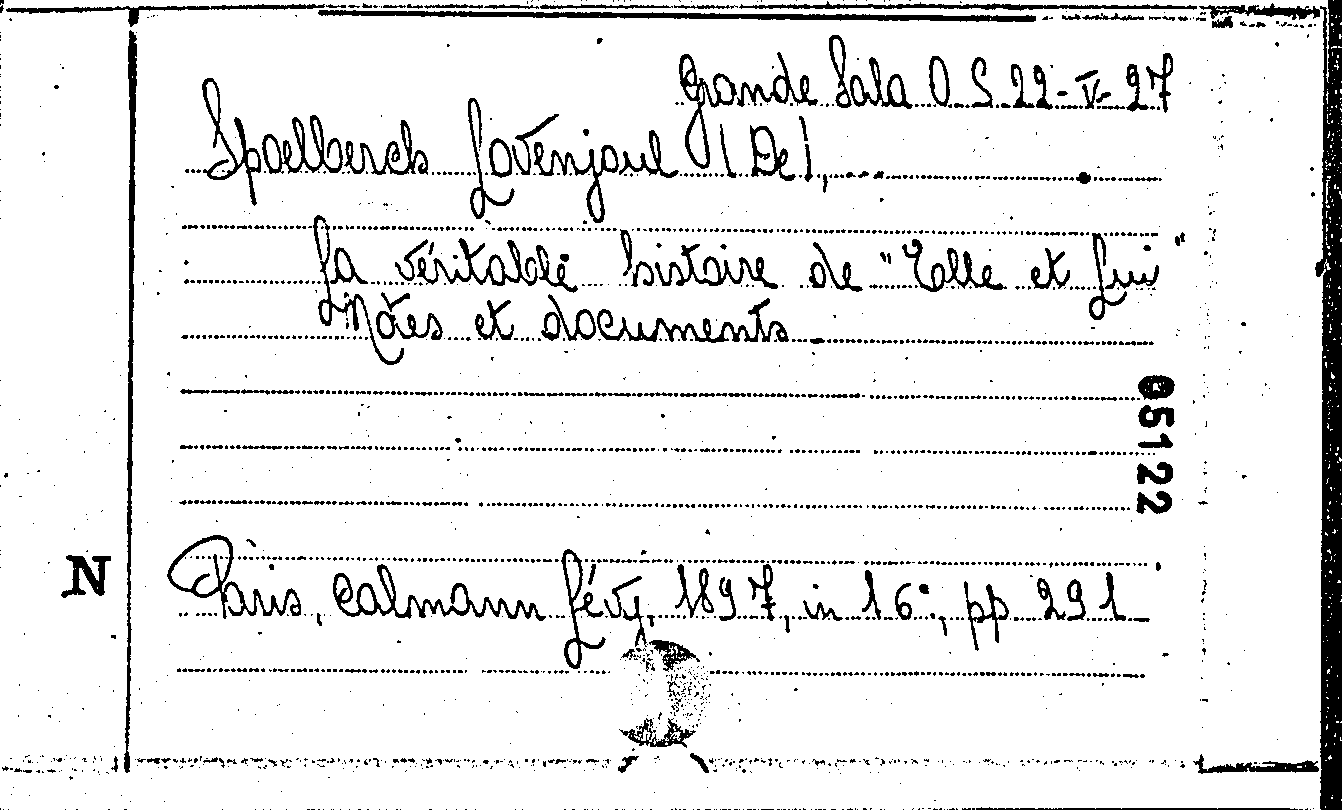 Grande Sala O.S. 22-V-27
Spoelberch Lovenjoul (De), ...
La véritable histoire de "Elle et Lui"
Notes et documents.
05122
N
Paris, Calmann Lévy, 1897, in 16°, pp. 291